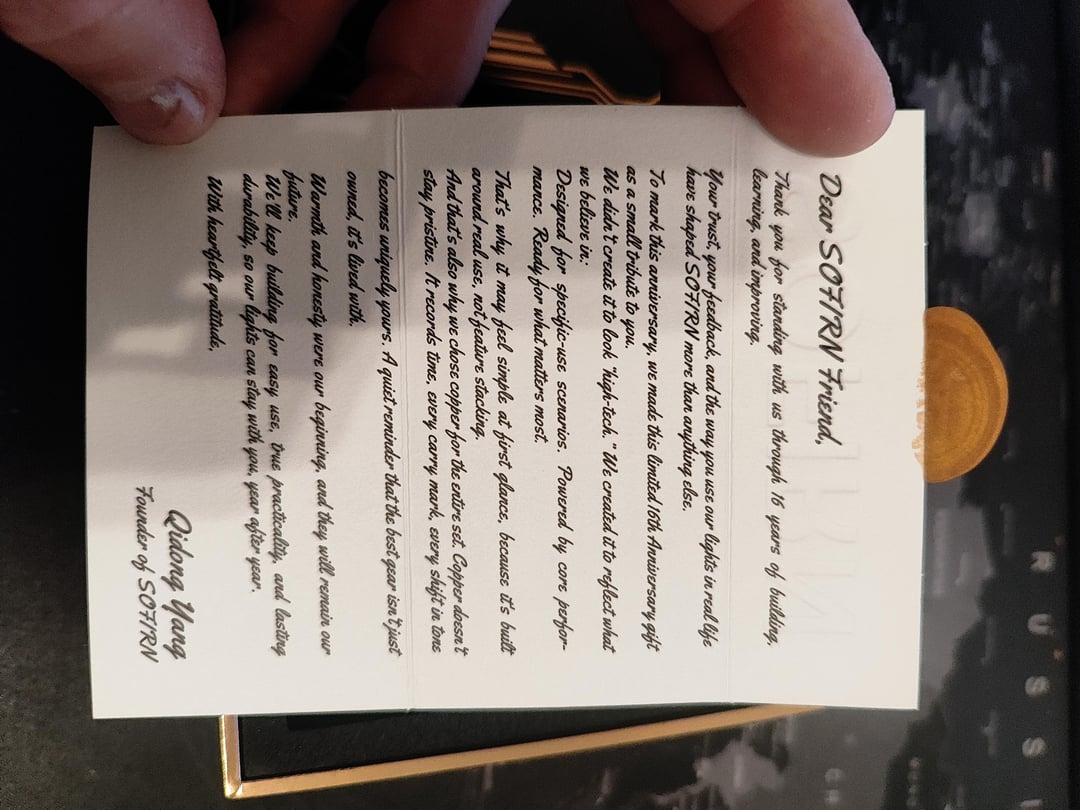 Dear SOFIRN Friend,
Thank you for standing with us through 16 years of building,
learning, and improving.
Your trust, your feedback, and the way you use our lights in real life
have shaped SOFIRN more than anything else.
To mark this anniversary, we made this limited 16th Anniversary gift
as a small tribute to you.
We didn't create it to look "high-tech." We created it to reflect what
we believe in:
Designed for specific-use scenarios. Powered by core perfor-
mance. Ready for what matters most.
That's why it may feel simple at first glace, because it's built
around real use, not feature stacking.
And that's also why we chose copper for the entire set. Copper doesn't
stay pristine. It records time, every carry mark, every shift in tone
becomes uniquely yours. A quiet reminder that the best gear isn't just
owned, it's lived with.
Warmth and honesty were our beginning, and they will remain our
future.
We'll keep building for easy use, true practicality, and lasting
durability, so our lights can stay with you, year after year.
With heartfelt gratitude,
Qidong Yang
Founder of SOFIRN
SOFIRN
R U S S I